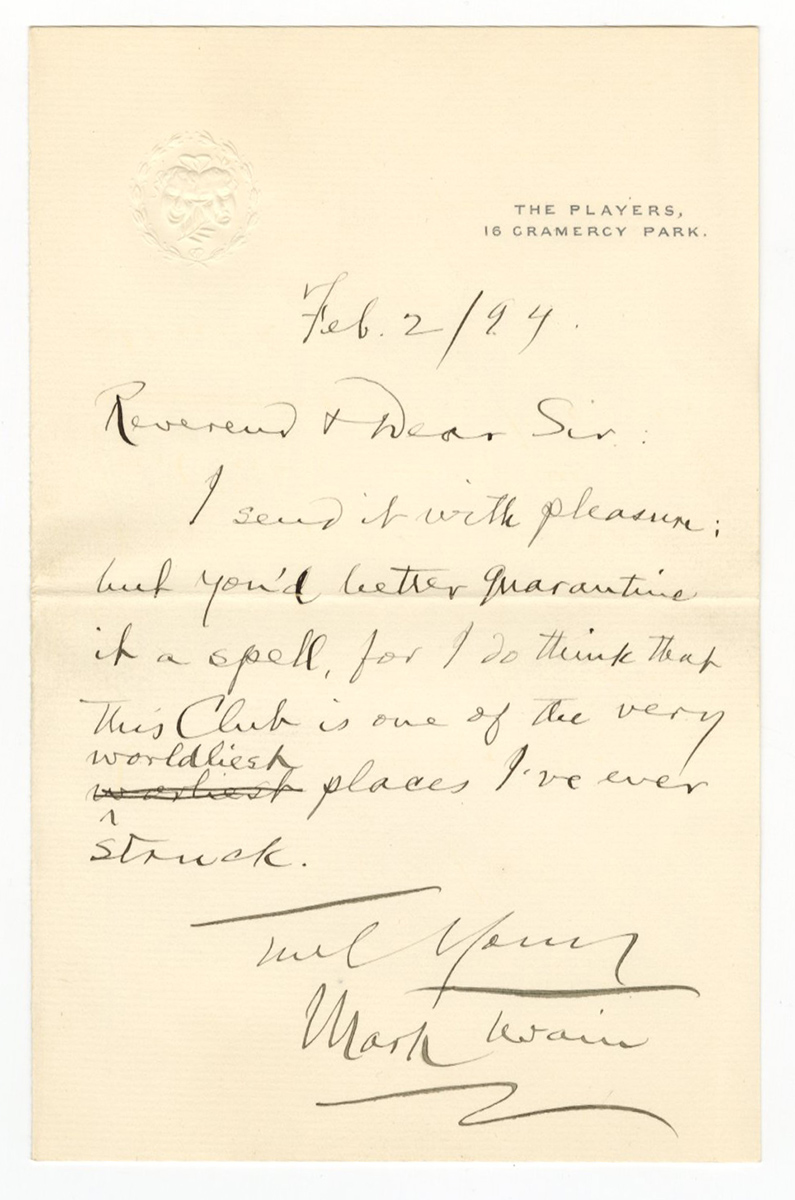 THE PLAYERS,
16 GRAMERCY PARK.
Feb. 2/94.
Reverend & Dear Sir:
I send it with pleasure;
but you'd better quarantine
it a spell, for I do think that
this Club is one of the very
worldliest
worliest places I've ever
struck.
Truly Yours
Mark Twain